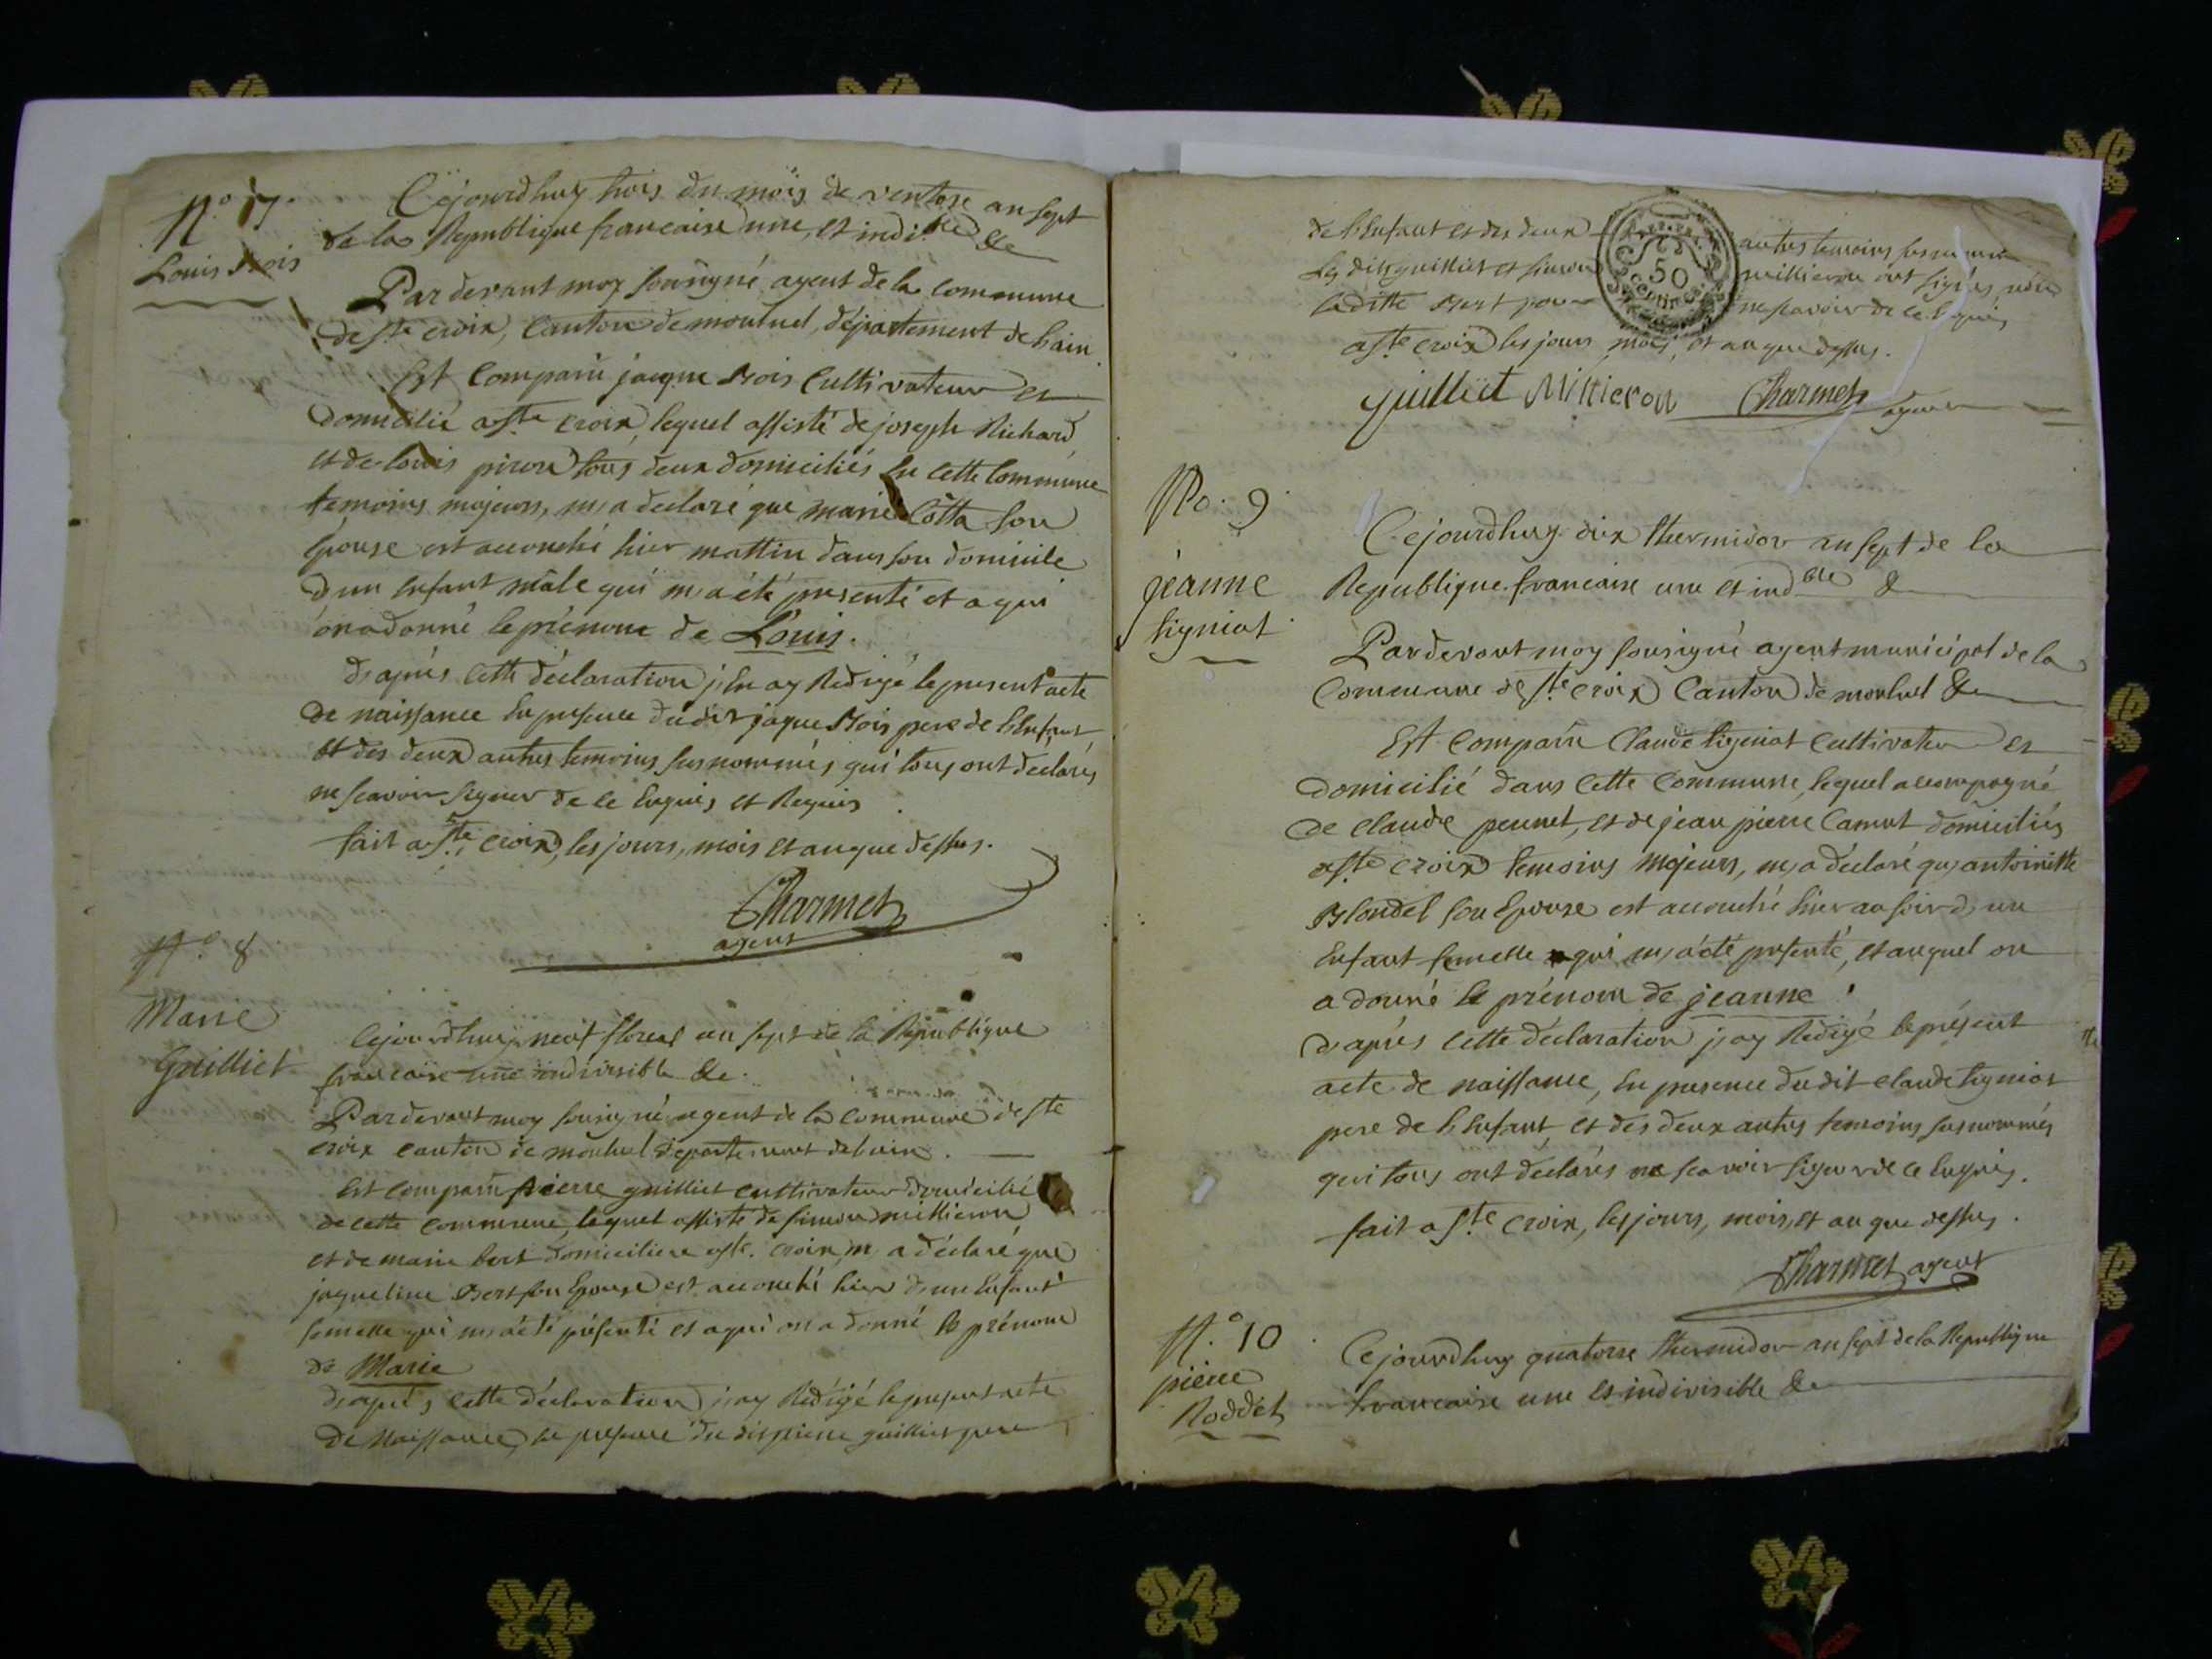 N.o 7.
Louis Bois
Cejourdhuy trois du mois de ventose an sept
de la Republique francaise une, et indi.ble &c
Par devant moy sousigné, agent de la commune
de ste croix, canton de montuel, département de l'ain
Est comparu jaque Bois cultivateur et
domicilié a ste croix, lequel assisté de joseph Richard
et de louis piron tous deux domiciliés en cette commune
temoins majeurs, m'a declaré que marie Cotta son
épouse est accouché hier mattin dans son domicile
d'un enfant mâle qui m'a été presenté et a qui
on a donné le prénom de Louis.
d'aprés cette déclaration j'en ay Redigé le present acte
de naissance en presence du dit jaque Bois pere de l'Enfant
et des deux autres temoins susnommés qui tous ont declarés
ne scavoir signer de ce Enquis et Requis
fait a ste croix, les jours, mois et an que dessus.
Charmet
agent
N.o 8
Marie
Guilliet
Cejourdhuy neuf floreal an sept de la République
francaise une indivisible &c.
Pardevant moy sousigné agent de la commune de ste
croix canton de montuel departement de l'ain.
Est comparu pierre guilliet cultivateur domicilié
de cette commune, lequel assisté de simon millieron
et de marie bert domiciliere a ste. croix, m'a déclaré que
jaqueline Bert son Epouse est accouché hier d'un Enfant
femelle qui m'a été présenté et a qui on a donné le prénom
de Marie
d'aprés cette déclaration j'ay Rédigé le present acte
de Naissance, en presence du dit pierre guilliet pere
de l'Enfant et des deux autres temoins susnommés
Les dits guilliet et simon millieron ont signés, non
laditte Bert pour ne savoir de ce Enquis
a ste croix les jours mois, et an que dessus.
50
centimes
guilliet Millieron Charmet
agent
No. 9
jeanne
tigniat
Cejourdhuy dix thermidor an sept de la
Republique francaise une et ind.ble &
Pardevant moy sousigné agent municipal de la
Commune de ste croix Canton de montuel &c
Est comparu Claude tigniat cultivateur et
domicilié dans cette commune, lequel accompagné
de claude peunet, et de jean pierre Camut domiciliés
a ste croix temoins majeurs, m'a déclaré qu'antoinette
Blondel son Epouse est accouché hier au soir d'un
Enfant femelle qui m'a été présenté, et auquel on
a donné le prénom de jeanne.
d'aprés cette déclaration j'ay Rédigé le présent
acte de naissance, en presence du dit claude tigniat
pere de l'Enfant, et des deux autres temoins susnommés
qui tous ont déclarés ne scavoir signer de ce Enquis.
fait a ste croix, les jours, mois, et an que dessus.
Charmet agent
N.o 10
pierre
Roddet
Cejourdhuy quatorse thermidor an sept de la Republique
francaise une et indivisible &c